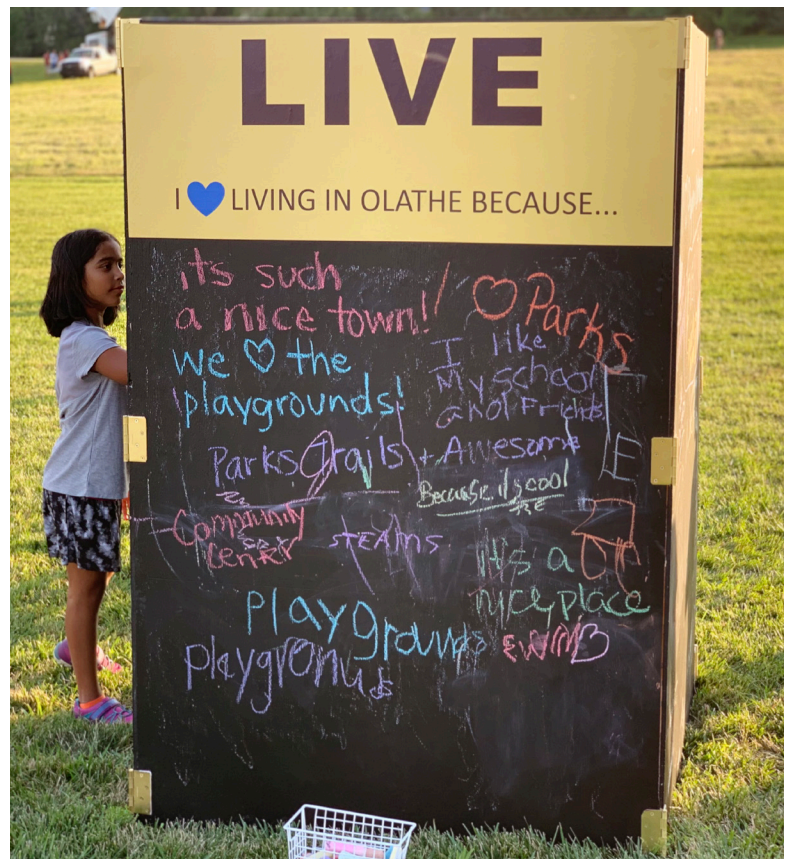 LIVE
I 💙 LIVING IN OLATHE BECAUSE...
it's such
a nice town!!
♡ Parks
we ♡ the
playgrounds!
I like
My school
and Friends
Parks Trails + Awesome
Because it's cool
Community
Center
STEAMS
it's a
nice place
playgrounds
playgronuds